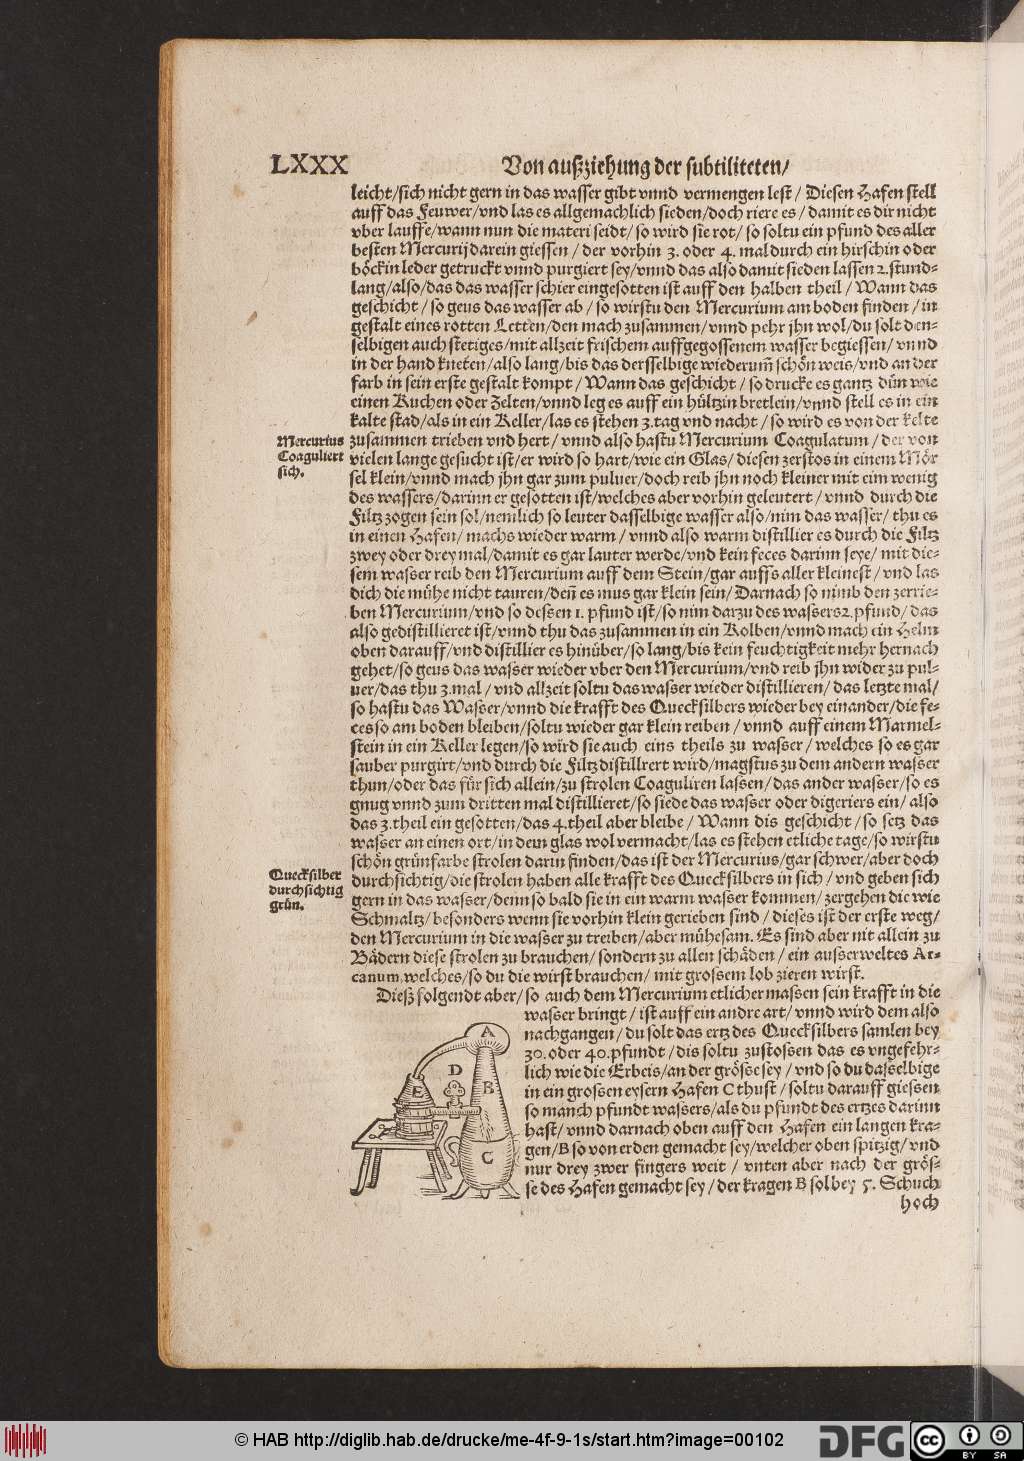 LXXX
Von außziehung der subtiliteten/
leicht/sich nicht gern in das wasser gibt vnnd vermengen lest/ Diesen Hafen stell
auff das Feuwer/vnd las es allgemachlich sieden/doch riere es/ damit es dir nicht
vber lauffe/wann nun die materi seidt/so wird sie rot/ so soltu ein pfund des aller
besten Mercurij darein giessen / der vorhin 3. oder 4. mal durch ein hirschin oder
böckin leder getruckt vnnd purgiert sey/vnnd das also damit sieden lassen 2.stund-
lang/also/das das wasser schier eingesotten ist auff den halben theil / Wann das
geschicht / so geus das wasser ab / so wirstu den Mercurium am boden finden / in
gestalt eines rotten Letten/den mach zusammen/vnnd pehr jhn wol/du solt den-
selbigen auch stetiges/mit allzeit frischem auffgegossenem wasser begiessen/ vnnd
in der hand kneten/also lang/bis das dersselbige wiederum̃ schön weis/vnd an der
farb in sein erste gestalt kompt / Wann das geschicht / so drucke es gantz dün wie
einen Kuchen oder Zelten/vnnd leg es auff ein hültzin bretlein/vnnd stell es in ein
kalte stad/als in ein Keller/las es stehen 3.tag vnd nacht / so wird es von der kelte
Mercurius
Coaguliert
sich.
zusammen trieben vnd hert / vnnd also hastu Mercurium Coagulatum / der von
vielen lange gesucht ist/er wird so hart/wie ein Glas/ diesen zerstos in einem Mör
sel klein/vnnd mach jhn gar zum puluer/doch reib jhn noch kleiner mit eim wenig
des wassers/darinn er gesotten ist/welches aber vorhin geleutert / vnnd durch die
Filtz zogen sein sol/nemlich so leuter dasselbige wasser also/nim das wasser/ thu es
in einen Hafen/ machs wieder warm / vnnd also warm distillier es durch die Filtz
zwey oder drey mal/damit es gar lauter werde/vnd kein feces darinn seye/ mit die-
sem wasser reib den Mercurium auff dem Stein/gar auffs aller kleinest / vnd las
dich die mühe nicht tauren/deñ es mus gar klein sein/ Darnach so nimb den zerrie-
ben Mercurium/vnd so dessen 1. pfund ist/so nim darzu des wassers 2.pfund/ das
also gedistillieret ist/vnnd thu das zusammen in ein Kolben/vnnd mach ein Helm
oben darauff/vnd distillier es hinüber/so lang/bis kein feuchtigkeit mehr hernach
gehet/so geus das wasser wieder vber den Mercurium/vnd reib jhn wider zu pul-
uer/das thu 3.mal / vnd allzeit soltu das wasser wieder distillieren/ das letzte mal/
so hastu das Wasser/vnnd die krafft des Quecksilbers wieder bey einander/die fe-
ces so am boden bleiben/soltu wieder gar klein reiben / vnnd auff einem Marmel-
stein in ein Keller legen/so wird sie auch eins theils zu wasser / welches so es gar
sauber purgirt/vnd durch die Filtz distillrert wird/magstus zu dem andern wasser
thun/oder das für sich allein/zu strolen Coaguliren lassen/das ander wasser/so es
gnug vnnd zum dritten mal distillieret/so siede das wasser oder digeriers ein/ also
das 3.theil ein gesotten/das 4.theil aber bleibe / Wann dis geschicht /so setz das
wasser an einen ort/in dem glas wol vermacht/las es stehen etliche tage/so wirstu
schön grünfarbe strolen darin finden/das ist der Mercurius/gar schwer/aber doch
Quecksilber
durchsichtig
grün.
durchsichtig/die strolen haben alle krafft des Quecksilbers in sich / vnd geben sich
gern in das wasser/denn so bald sie in ein warm wasser kommen/ zergehen die wie
Schmaltz/besonders wenn sie vorhin klein gerieben sind / dieses ist der erste weg/
den Mercurium in die wasser zu treiben/aber mühesam. Es sind aber nit allein zu
Bädern diese strolen zu brauchen/ sondern zu allen schäden / ein ausserweltes Ar-
canum, welches/so du die wirst brauchen/ mit grossem lob zieren wirst.
Dieß folgendt aber/ so auch dem Mercurium etlicher massen sein krafft in die
wasser bringt / ist auff ein andre art/ vnnd wird dem also
nachgangen / du solt das ertz des Quecksilbers samlen bey
30. oder 40.pfundt /dis soltu zustossen das es vngefehr-
lich wie die Erbeis/an der grösse sey / vnd so du dasselbige
in ein grossen eysern Hafen C thust / soltu darauff giessen
so manch pfundt wassers/als du pfundt des ertzes darinn
hast/ vnnd darnach oben auff den Hafen ein langen kra-
gen/B so von erden gemacht sey/welcher oben spitzig/ vnd
nur drey zwer fingers weit / vnten aber nach der grös-
se des Hafen gemacht sey / der kragen B sol bey 5. Schuch
hoch
A
D
E
B
C
© HAB http://diglib.hab.de/drucke/me-4f-9-1s/start.htm?image=00102
DFG
cc
BY SA